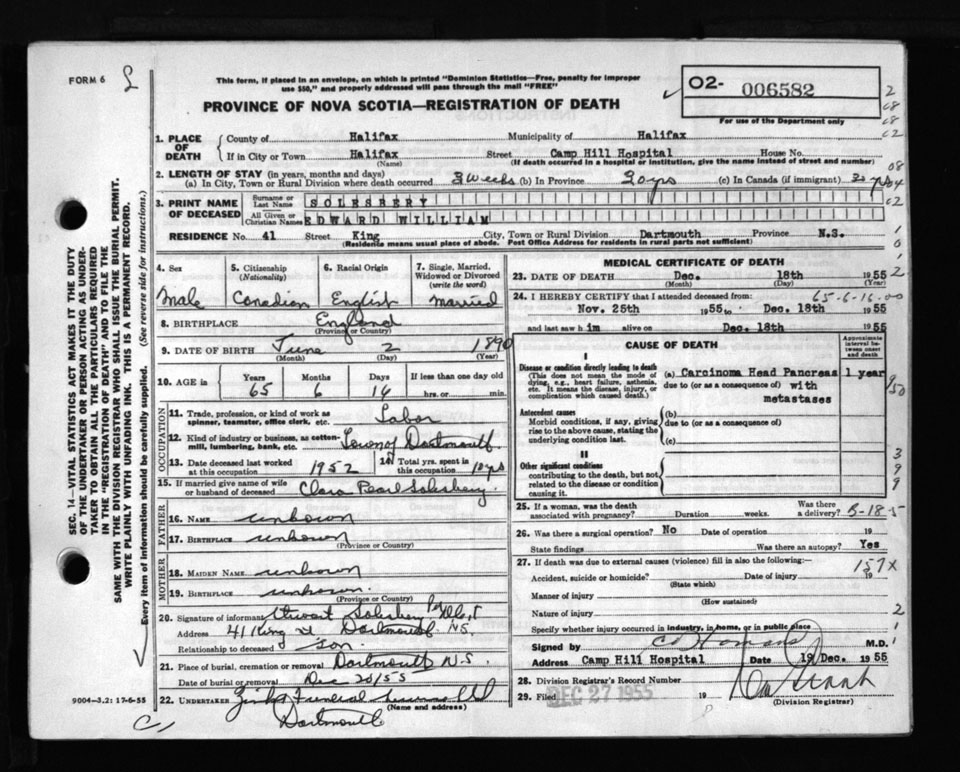 FORM 6
This form, if placed in an envelope, on which is printed "Dominion Statistics—Free, penalty for improper
use $50," and properly addressed will pass through the mail "FREE"
PROVINCE OF NOVA SCOTIA—REGISTRATION OF DEATH
O2- 006582
For use of the Department only
1. PLACE OF DEATH
County of Halifax Municipality of Halifax
If in City or Town Halifax Street Camp Hill Hospital House No.
(Name) (If death occurred in a hospital or institution, give the name instead of street and number)
2. LENGTH OF STAY (in years, months and days)
(a) In City, Town or Rural Division where death occurred 3 Weeks (b) In Province 30 yrs (c) In Canada (if immigrant) 30 yrs
3. PRINT NAME OF DECEASED
Surname or Last Name SOLESBERY
All Given or Christian Names EDWARD WILLIAM
RESIDENCE No. 41 Street King City, Town or Rural Division Dartmouth Province N.S.
(Residents means usual place of abode. Post Office Address for residents in rural parts not sufficient)
4. Sex Male
5. Citizenship (Nationality) Canadian
6. Racial Origin English
7. Single, Married, Widowed or Divorced (write the word) Married
8. BIRTHPLACE England
(Province or Country)
9. DATE OF BIRTH June 2 1890
(Month) (Day) (Year)
10. AGE in Years 65 Months 6 Days 16 If less than one day old
hrs. or min.
OCCUPATION
11. Trade, profession, or kind of work as spinner, teamster, office clerk, etc. Labor
12. Kind of industry or business, as cotton-mill, lumbering, bank, etc. Town of Dartmouth
13. Date deceased last worked at this occupation 1952
14. Total yrs. spent in this occupation 10 yrs
15. If married give name of wife or husband of deceased Clara Pearl Solesbery
FATHER
16. NAME unknown
17. BIRTHPLACE unknown
(Province or Country)
MOTHER
18. MAIDEN NAME unknown
19. BIRTHPLACE unknown
(Province or Country)
20. Signature of informant Stewart Solesbery
Address 41 King St Dartmouth NS.
Relationship to deceased Son
21. Place of burial, cremation or removal Dartmouth N.S.
Date of burial or removal Dec 20/55
22. UNDERTAKER Funeral Ltd
(Name and address)
Dartmouth
MEDICAL CERTIFICATE OF DEATH
23. DATE OF DEATH Dec. 18th 1955
(Month) (Day)
24. I HEREBY CERTIFY that I attended deceased from: 65-6-16-00
Nov. 25th 1955 to Dec. 18th 1955
and last saw him alive on Dec. 18th 1955
CAUSE OF DEATH
Approximate interval between onset and death
I
Disease or condition directly leading to death
(This does not mean the mode of dying, e.g., heart failure, asthenia, etc. It means the disease, injury, or complication which caused death.)
(a) Carcinoma Head Pancreas 1 year
due to (or as a consequence of) with
metastases
Antecedent causes
Morbid conditions, if any, giving rise to the above cause, stating the underlying condition last.
(b)
due to (or as a consequence of)
(c)
II
Other significant conditions
contributing to the death, but not related to the disease or condition causing it.
25. If a woman, was the death associated with pregnancy? Duration weeks. Was there a delivery? 5-18-5
26. Was there a surgical operation? No Date of operation 19
State findings Was there an autopsy? Yes
27. If death was due to external causes (violence) fill in also the following:— 157X
Accident, suicide or homicide? Date of injury 19
(State which)
Manner of injury
(How sustained)
Nature of injury
Specify whether injury occurred in industry, in home, or in public place
Signed by M.D.
Address Camp Hill Hospital Date 19 Dec. 1955
28. Division Registrar's Record Number
29. Filed DEC 27 1955 19
(Division Registrar)
SEC. 14—VITAL STATISTICS ACT MAKES IT THE DUTY
OF THE UNDERTAKER OR PERSON ACTING AS UNDER-
TAKER TO OBTAIN ALL THE PARTICULARS REQUIRED
IN THE "REGISTRATION OF DEATH" AND TO FILE THE
SAME WITH THE DIVISION REGISTRAR WHO SHALL ISSUE THE BURIAL PERMIT.
WRITE PLAINLY WITH UNFADING INK. THIS IS A PERMANENT RECORD.
Every item of information should be carefully supplied. (See reverse side for instructions.)
9004—3.2: 17-6-55